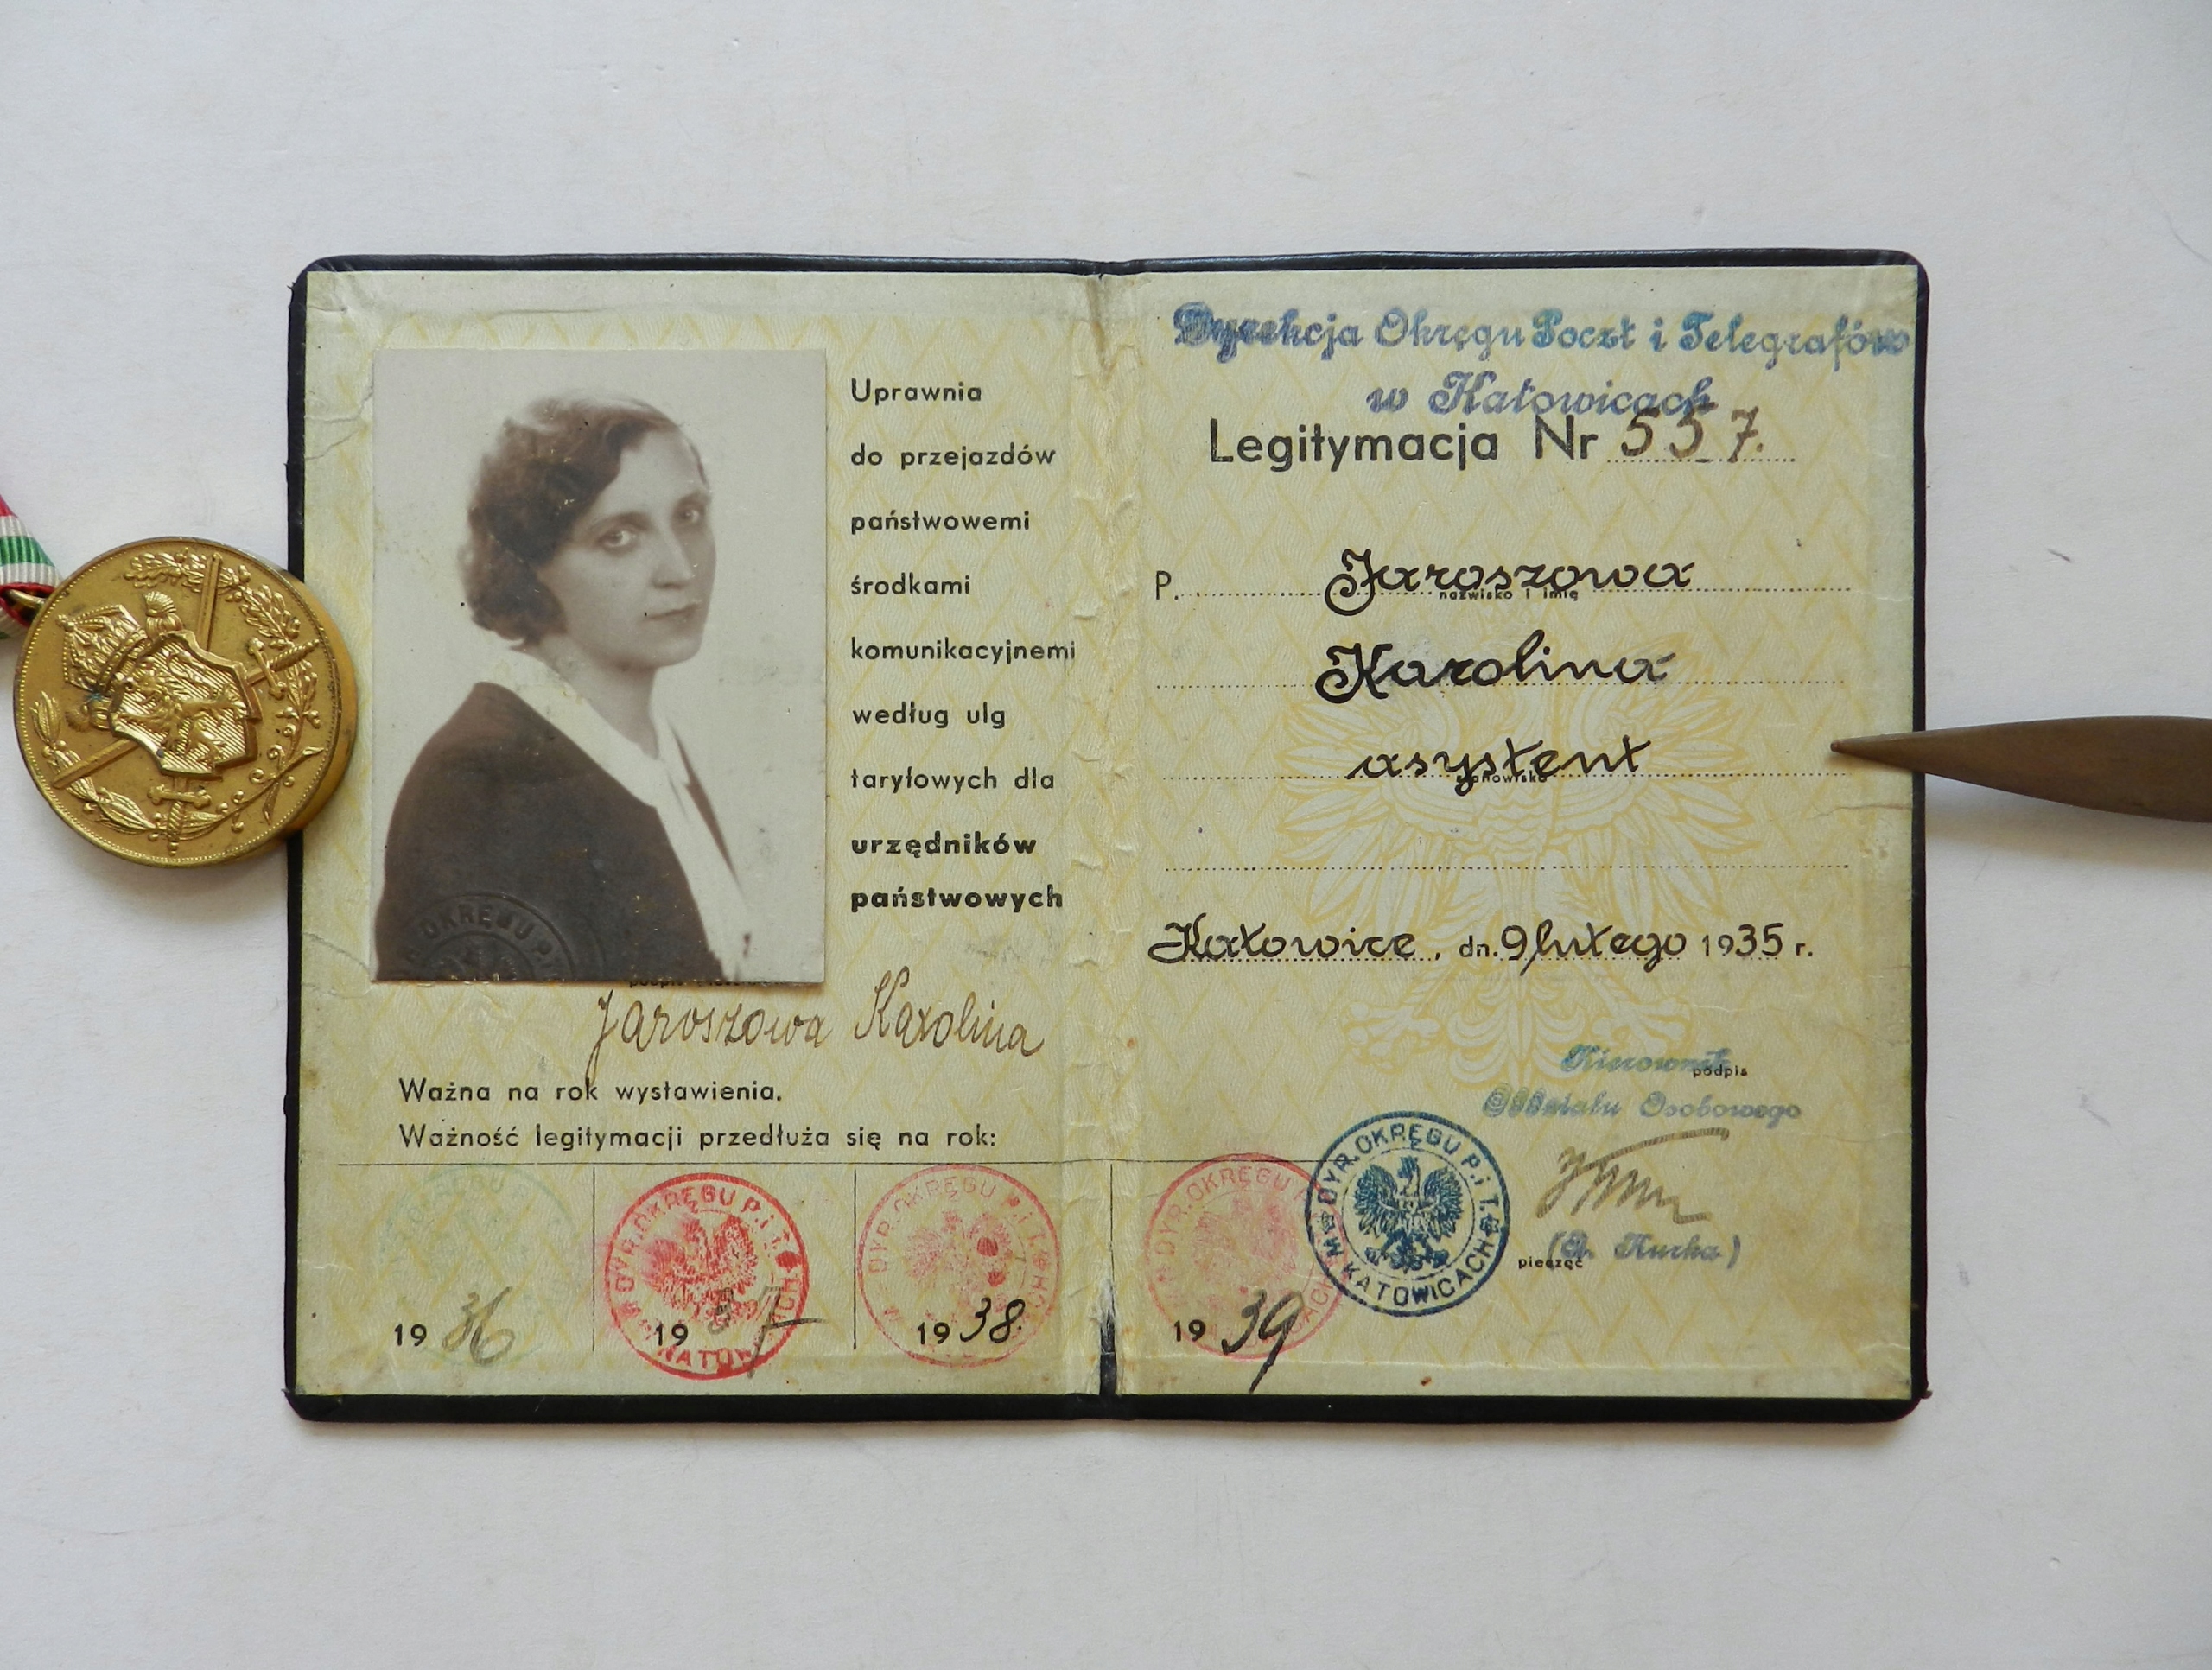 Uprawnia
do przejazdów
państwowemi
środkami
komunikacyjnemi
według ulg
taryfowych dla
urzędników
państwowych
OKRĘGU P.
podpis
Jaroszowa Karolina
Ważna na rok wystawienia.
Ważność legitymacji przedłuża się na rok:
OKRĘGU
19 36
DYR. OKRĘGU P. i T.
KATOW CH
19 37
DYR. OKRĘGU P. i T.
19 38.
Dyrekcja Okręgu Poczt i Telegrafów
w Katowicach
Legitymacja Nr 557.
P. Jaroszowa
nazwisko i imię
Karolina
asystent
stanowisko
Katowice, dn. 9 lutego 1935 r.
Kierownik
podpis
Oddziału Osobowego
DYR. OKRĘGU P. i T. W KATOWICACH
pieczęć
DYR. OKRĘGU P.
19 39